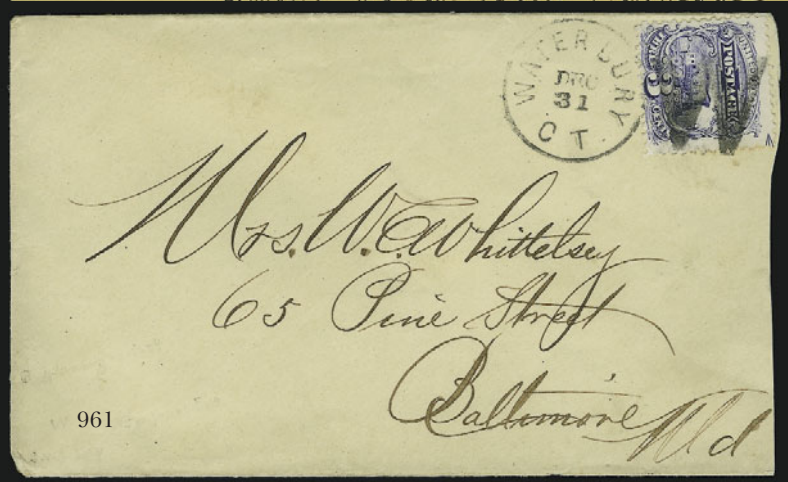 WATERBURY
DEC
31
CT.
UNITED STATES
POSTAGE
3
3
Mrs. W. E. Whittelsey
65 Pine Street
Baltimore Md
961